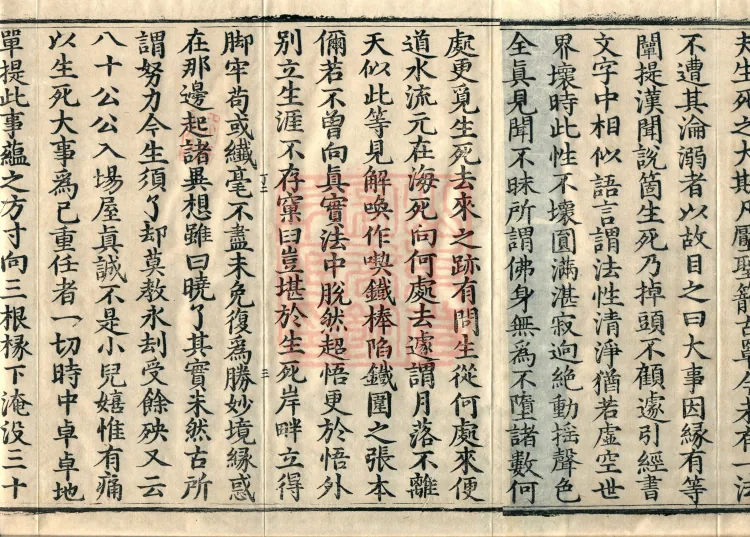 夫生死之大
不遭其淪溺者以故目之曰大事因緣有等
闡提漢聞說箇生死乃掉頭不顧遽引經書
文字中相似語言謂法性清淨猶若虛空世
界壞時此性不壞圓滿湛寂逈絶動摇聲色
全真見聞不昧所謂佛身無爲不墮諸數何
處更覓生死去來之跡有問生從何處來便
道水流元在海死向何處去遽謂月落不離
天似此等見解喚作喫鐵棒陷鐵圍之張本
儞若不曾向真實法中脫然超悟更於悟外
别立生涯不存窠臼豈堪於生死岸畔立得
脚牢苟或纖毫不盡未免復爲勝妙境緣惑
在那邊起諸異想雖曰曉了其實未然古所
謂努力今生須了却莫教永刦受餘殃又云
八十公公入場屋真誠不是小兒嬉惟有痛
以生死大事爲己重任者一切時中卓卓地
單提此事蘊之方寸向三根椽下淹没三十
三